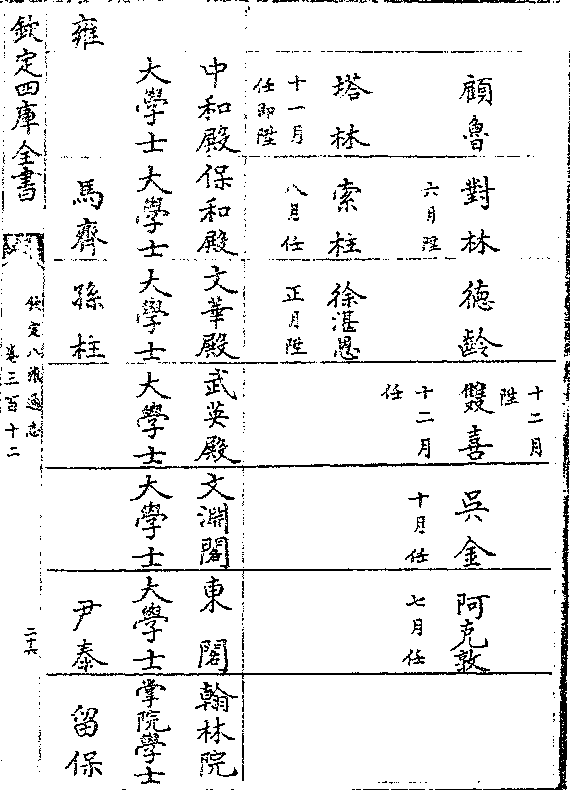 十二月
陞
顧魯
對林
德齡
雙喜
吳金
阿克敦
六月陞
十二月
任
十月任
七月任
塔林
索柱
徐湛恩
十一月
任即陞
八月任
正月陞
中和殿
大學士
保和殿
大學士
文華殿
大學士
武英殿
大學士
文淵閣
大學士
東閣
大學士
翰林院
掌院學士
雍
馬齊
孫柱
尹泰
留保
欽定四庫全書
欽定八旗通志
卷三百十二
二十六